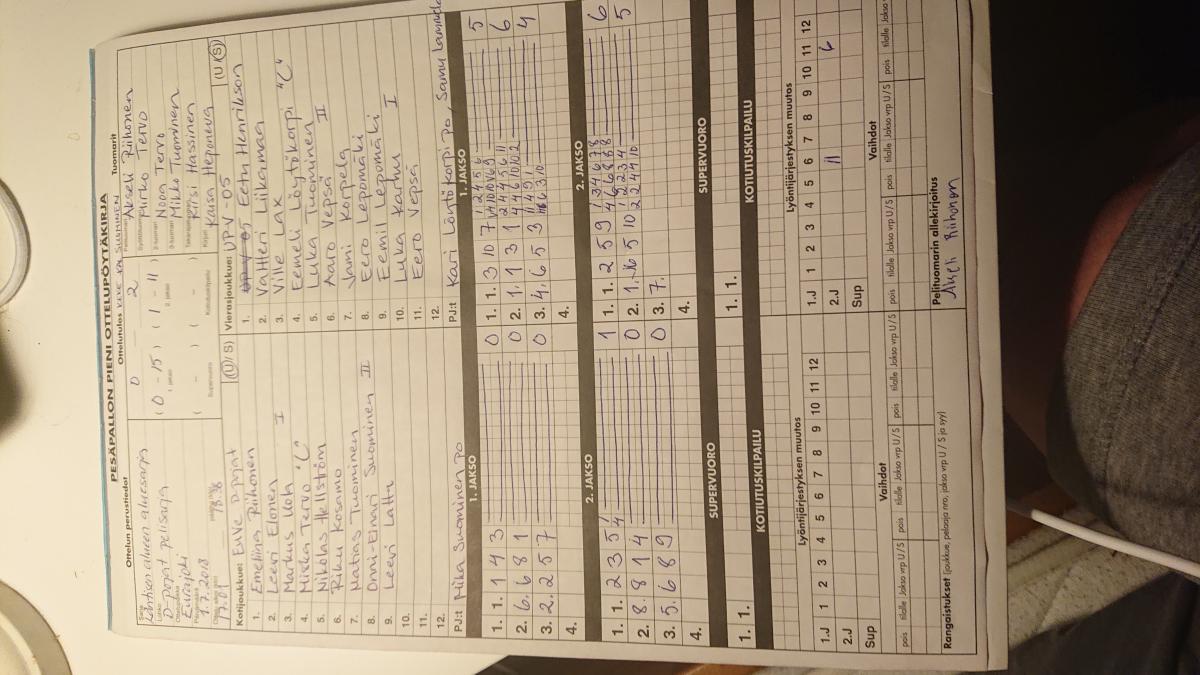 PESÄPALLON PIENI OTTELUPÖYTÄKIRJA
Ottelun perustiedot
Ottelutulos
Tuomarit
Sarja Läntisen alueen aluesarja
Lohko D-pojat pelisarja
Ottelupaikka Eurajoki
1.7.2018
17.01 18.38
0 2
( 0 - 15 ) ( 1 - 11 )
1. jakso 2. jakso
( - ) ( - )
Supervuoro Kotiutuskilpailu
Pelituomari Akseli Riihonen
Syöttötuomari Mirko Tervo
2-tuomari Noona Tervo
3-tuomari Mikko Tuominen
Takarajatuomari Kirsi Hassinen
Kirjuri Kaisa Heponeva
Kotijoukkue: EuVe D-pojat (U/S)
1. Emeliina Riihonen
2. Leevi Elonen
3. Markus Koh I
4. Miska Tervo "C"
5. Nikolas Hellström
6. Riku Kosamo
7. Matias Tuominen
8. Onni-Einari Suominen II
9. Leevi Latti
10.
11.
12.
PJ:t Mika Suominen PO
Vierasjoukkue: UPV-05 (U/S)
1. Eetu Henrikson
2. Valtteri Liikamaa
3. Ville Lax "C"
4. Eemeli Löytökorpi
5. Luka Tuominen
6. Aaro Vepsä II
7. Jami Korpela
8. Eero Lepomäki
9. Eemil Lepomäki
10. Luka Karhu I
11. Eero Vepsä
12.
PJ:t Kari Löytökorpi PO, Samu
1. JAKSO 1. JAKSO
1. 1. 1 4 3 0
2. 6. 6 8 1 0
3. 2. 2 5 7 0
4.
1. 1. 3 10 7 5
2. 1. 1 3 1 6
3. 4. 6 5 3 4
4.
2. JAKSO 2. JAKSO
1. 1. 2 3 5 1
2. 8. 8 1 4 0
3. 5. 6 8 9 0
4.
1. 1. 2 5 9 6
2. 5 10 5
3. 7.
4.
SUPERVUORO SUPERVUORO
1. 1. 1. 1.
KOTIUTUSKILPAILU KOTIUTUSKILPAILU
Lyöntijärjestyksen muutos Lyöntijärjestyksen muutos
1.J 1 2 3 4 5 6 7 8 9 10 11 12
2.J
Sup
1.J 1 2 3 4 5 6 7 8 9 10 11 12
2.J 11 6
Sup
Vaihdot Vaihdot
pois tilalle Jakso vrp U/S pois tilalle Jakso vrp U/S
pois tilalle Jakso vrp U/S pois tilalle Jakso
Rangaistukset (joukkue, pelaaja nro, jakso vrp U / S ja syy)
Pelituomarin allekirjoitus
Akseli Riihonen